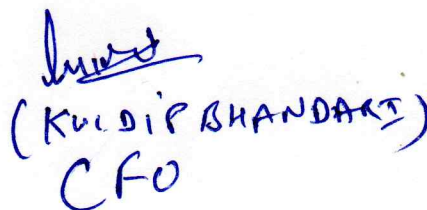 (KULDIP BHANDARI)
CFO